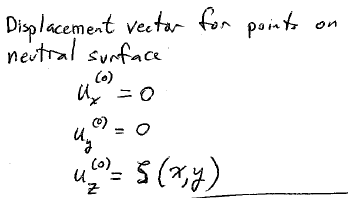 Displacement vector for points on
neutral surface
u_x^(0) = 0
u_y^(0) = 0
u_z^(0) = ζ(x,y)